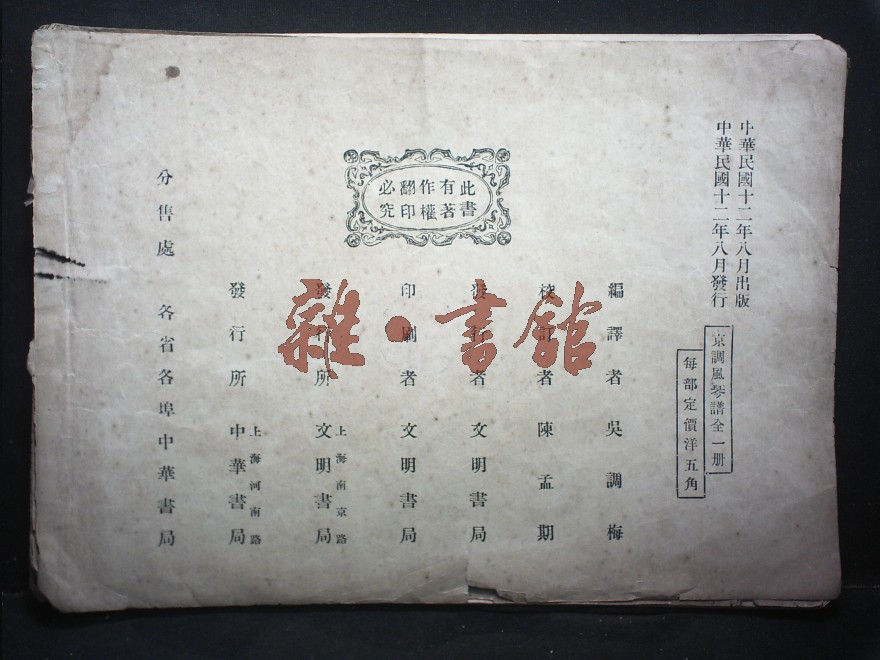 中華民國十二年八月出版
中華民國十二年八月發行
京調風琴譜全一册
每部定價洋五角
此書有著作權翻印必究
編譯者吳調梅
校訂者陳孟期
發行者文明書局
印刷者文明書局
上海南京路
發行所文明書局
上海河南路
發行所中華書局
分售處各省各埠中華書局
雜·書館